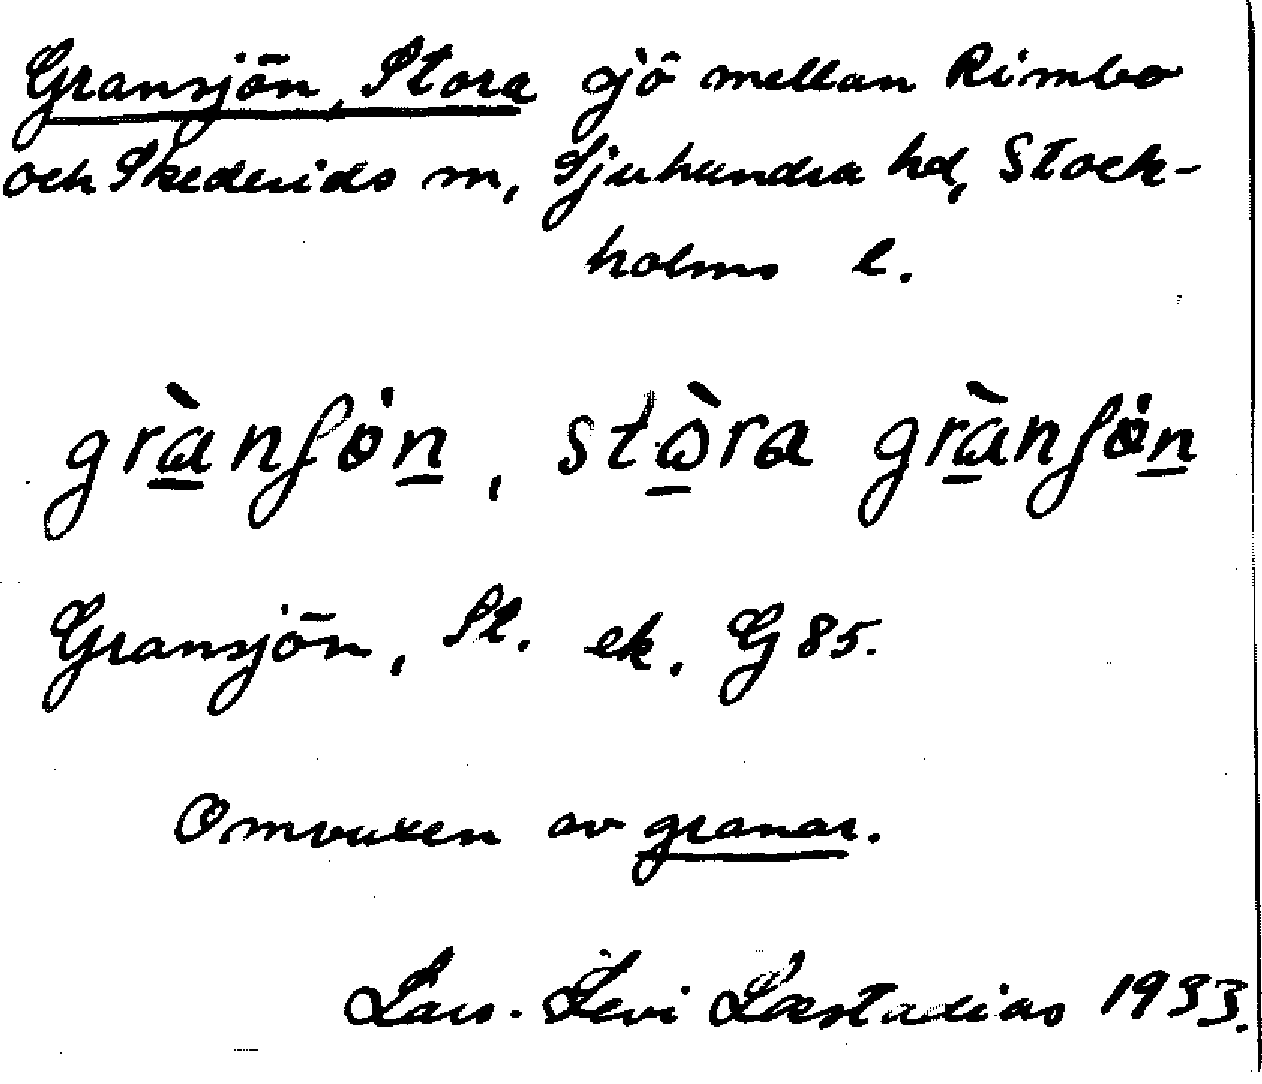 Gransjön, Stora sjö mellan Rimbo
och Skederids sn, Sjuhundra hd, Stock-
holms l.
grànſön, stòra grànſön
Gransjön, St. ek. G 85.
Omvuxen av granar.
Lars-Levi Læstadius 1933.